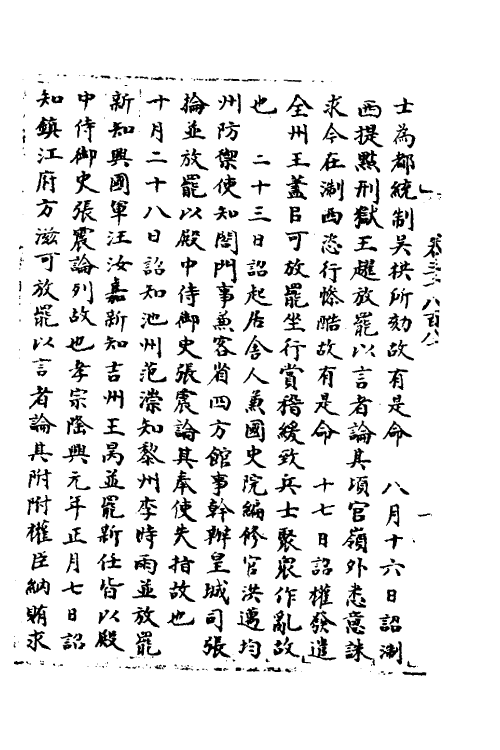 士為都統制吳拱所劾故有是命　八月十六日詔淛
西提點刑獄王趯放罷以言者論其頃官嶺外恣意誅
求今在淛西恣行慘酷故有是命　十七日詔權發遣
全州王蓋臣可放罷坐行賞稽緩致兵士聚眾作亂故
也　二十三日詔起居舍人兼國史院編修官洪邁均
州防禦使知閤門事兼客省四方館事幹辦皇城司張
掄並放罷以殿中侍御史張震論其奉使失指故也
十月二十八日詔知池州范漴知黎州李時雨並放罷
新知興國軍汪汝嘉新知吉州王曷並罷新任皆以殿
中侍御史張震論列故也孝宗隆興元年正月七日詔
知鎮江府方滋可放罷以言者論其附附權臣納賄求